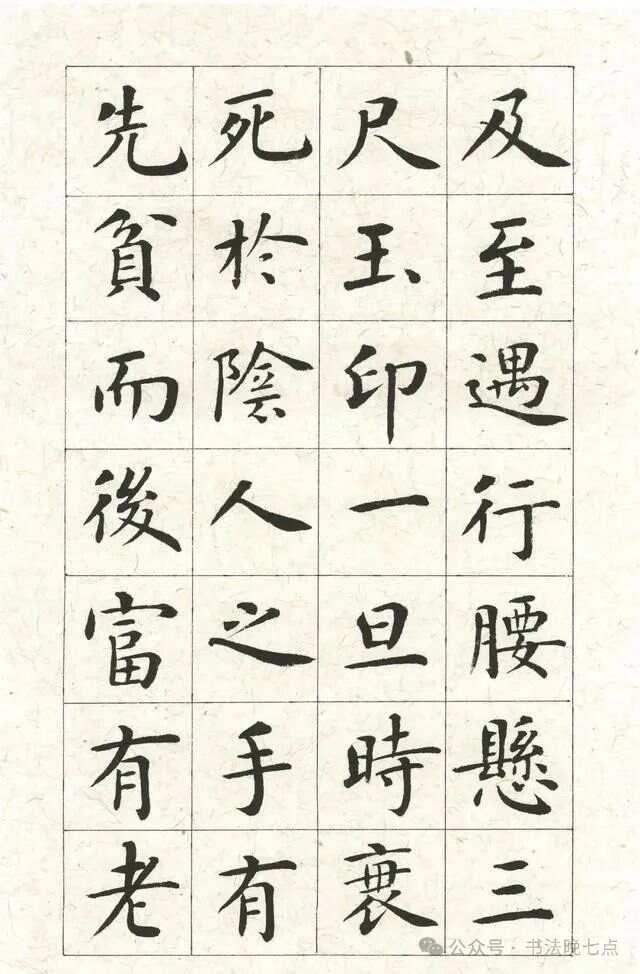 及至遇行腰懸三
尺玉印一旦時衰
死於陰人之手有
先貧而後富有老
公众号·书法晚七点